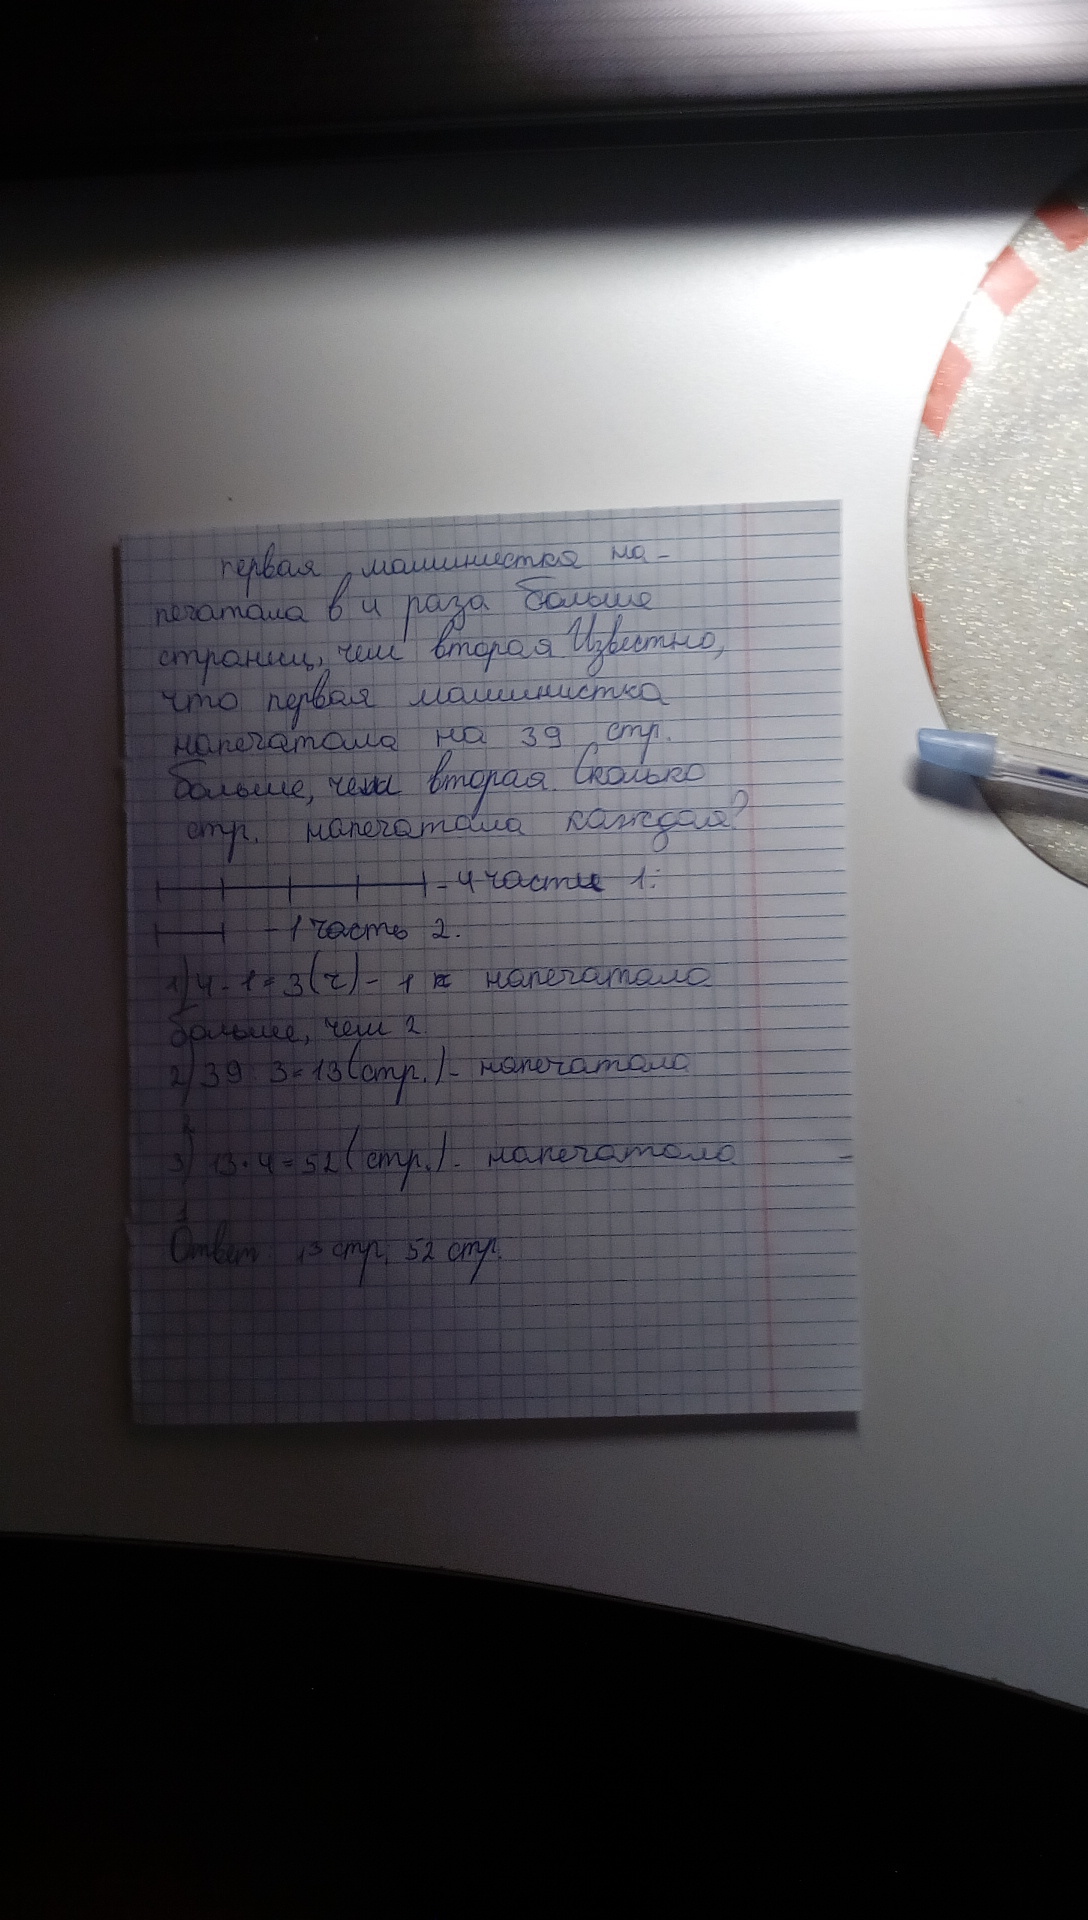 первая машинистка на-
печатала в 4 раза больше
страниц, чем вторая Известно,
что первая машинистка
напечатала на 39 стр.
больше, чем вторая. Сколько
стр. напечатала каждая?
- 4 части 1.
- 1 часть 2.
1) 4 - 1 = 3 (ч) - 1 напечатала
больше, чем 2
2) 39 : 3 = 13 (стр.) - напечатала
2
3) 13 · 4 = 52 (стр.) - напечатала
1
Ответ: 13 стр, 52 стр.